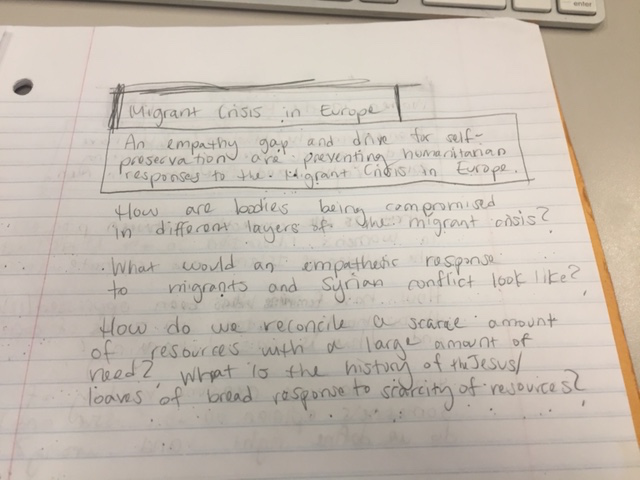 Migrant Crisis in Europe
An empathy gap and drive for self-
preservation are preventing humanitarian
responses to the Migrant Crisis in Europe.
How are bodies being compromised
in different layers of the migrant crisis?
What would an empathetic response
to migrants and Syrian conflict look like?
How do we reconcile a scarce amount
of resources with a large amount of
need? What is the history of the Jesus/
loaves of bread response to scarcity of resources?
enter